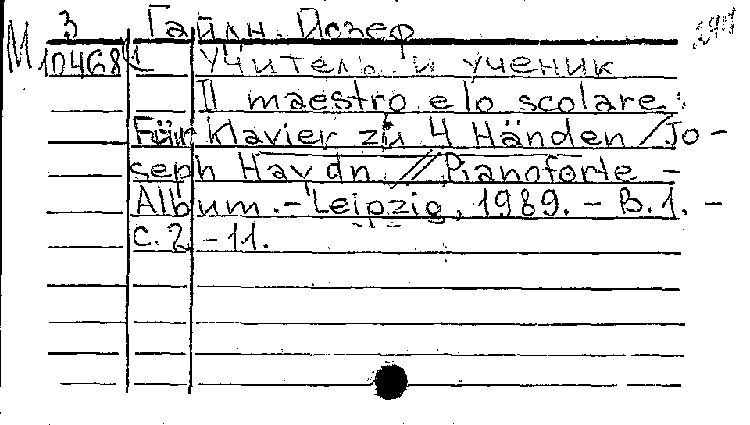 3 Гайдн, Йозеф
М 104681 Учитель и ученик
Il maestro e lo scolare:
Für Klavier zu 4 Händen / Jo-
seph Haydn // Pianoforte -
Album. - Leipzig, 1989. - B. 1. -
с. 2 - 11.